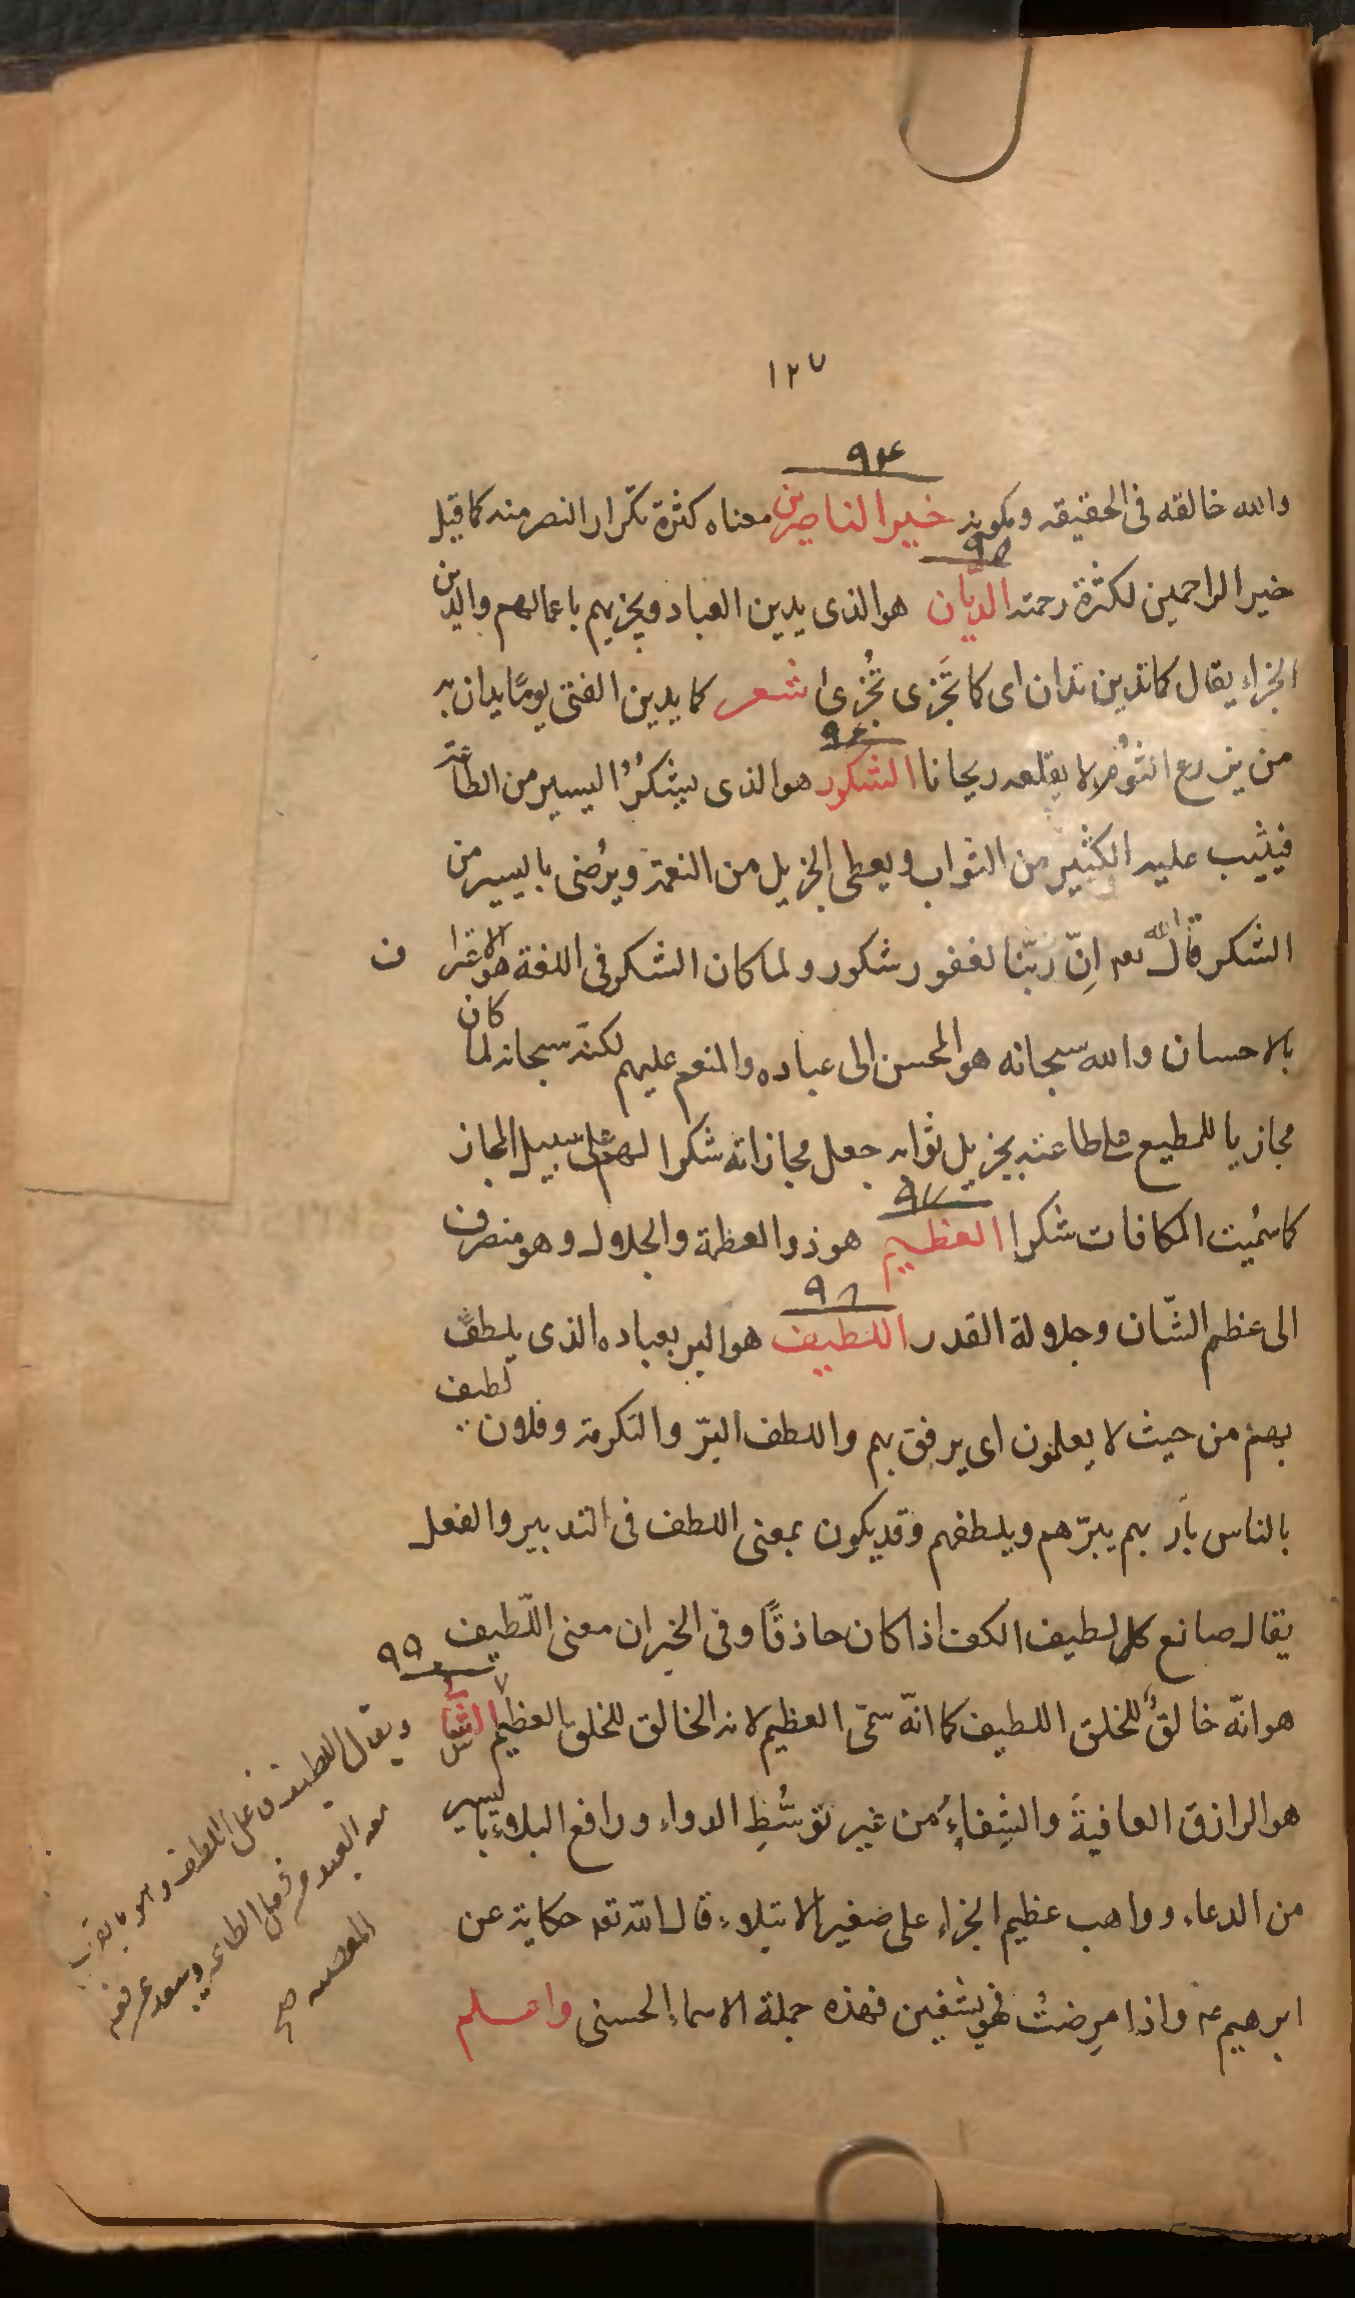 ١٢٧
٩٤
والله خالقه فى الحقيقه ومكونه خير الناصرين معناه كثرة تكرار النصر منه كما قيل
٩٥
خير الراحمين لكثرة رحمته الديّان هو الذى يدين العباد ويجزيهم باعمالهم والدين
الجزاء يقال كما تدين تدان اى كما تَجزى تُجزى شعر كما يدين الفتى يومًا يدان به
٩٦
من يزرع الثوُم لا يقلعه ريحانا الشكور هو الذى يشكرُ اليسير من الطاعة
فيثيب عليه الكثير من الثواب ويعطى الجزيل من النعمة ويرضى باليسير من
الشكر قال الله تعه اِنّ ربّنا لغفور شكور ولما كان الشكر فى اللغة هو الاعترا ف
بالاحسان والله سبحانه هو المحسن الى عباده والمنعم عليهم لكنّه سبحانه لما كان
مجازيا للمطيع على طاعته بجزيل ثوابه جعل مجازاته شكرا لهم على سبيل المجاز
٩٧
كما سُمّيت المكافات شكرا العظيم هو ذو العظمة والجلال وهو منصرف
٩٨
الى عظم الشّان وجلالة القدر اللطيف هو البر بعباده الذى يلطف
بهم من حيث لا يعلمون اى يرفق بهم واللطف البرّ والتكرمة وفلان لطيف
بالناس بارّ بهم يبرّهم ويلطفهم وقد يكون بمعنى اللطف فى التدبير والفعل
يقال صانع لطيف الكف اذا كان حاذقًا وفى الخبر ان معنى اللّطيف
٩٩
هو انّه خالقٌ للخلق اللطيف كما انّه سمّى العظيم لانه الخالق للخلق العظيم الشافى
هو الرازق العافيةَ والشِفاءَ من غير توسُّطِ الدواء ورافع البلاء باليسير
من الدعاء وواهب عظيم الجزاء على صغير الابتلاء قال الله تعه حكاية عن
ابرهيم ع واذا مرِضتُ فهو يشفين فهذه جملة الاسماء الحسنى واعلم
ويقال اللطيف فاعل اللطف وهو ما يقرب
معه العبد من فعل الطاعه ويبعد عن فعل
المعصيه صح